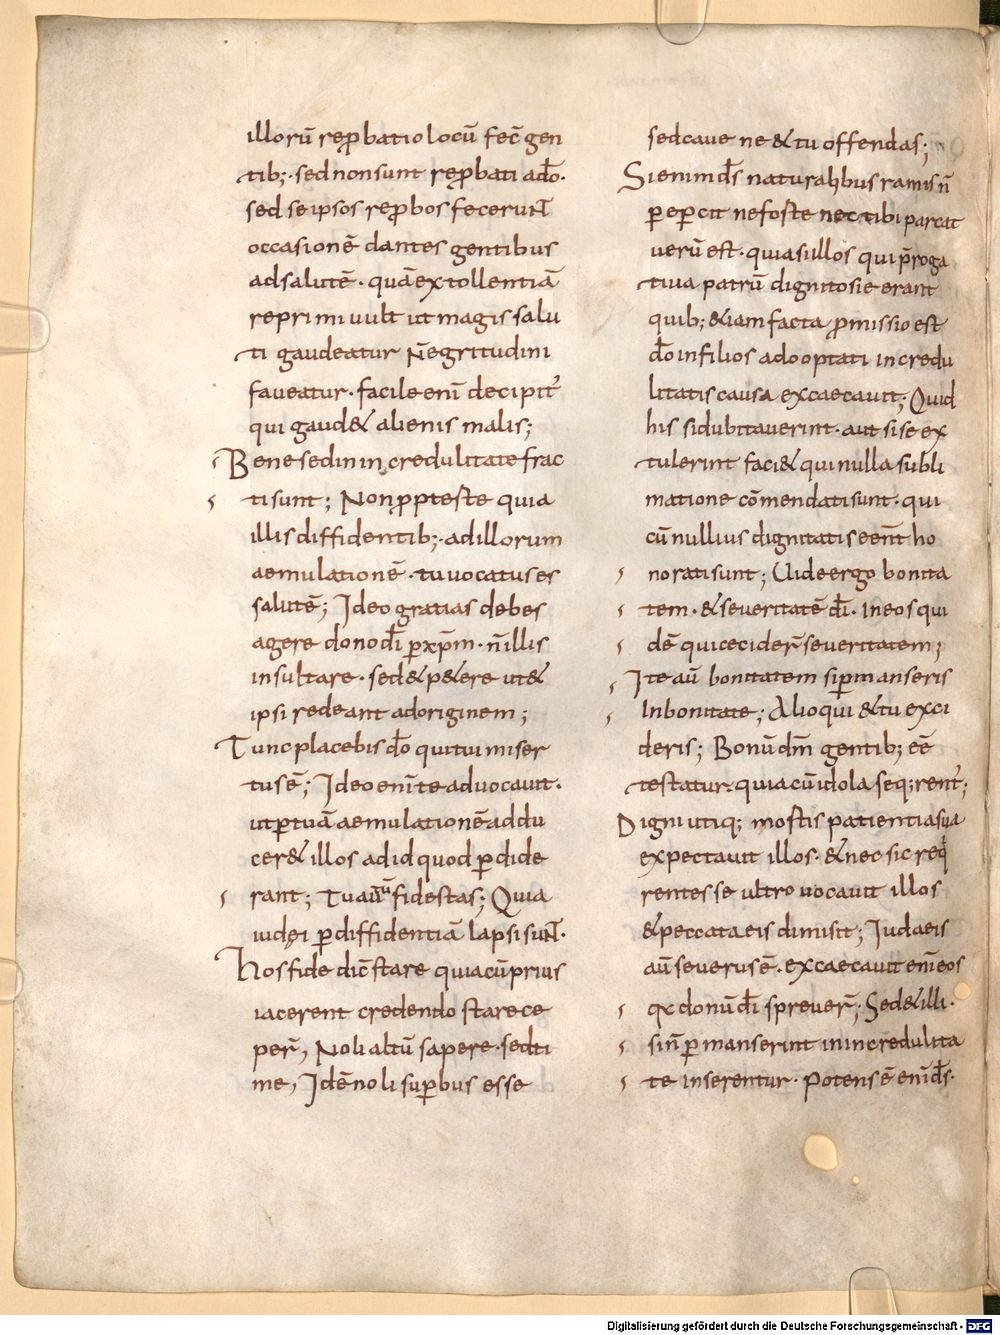 illorū rep̱batio locū fec̄ gen
tib;· sed non sunt rep̱bati ad̄o·
sed se ipsos rep̱bos feceruNT
occasionē dantes gentibus
ad salutē· quā extollentiā
reprimi uult ut magis salu
ti gaudeatur n̄ egritudini
faueatur· facile enī decipit᷑
qui gaud& alienis malis;
Bene sed in incredulitate frac
ti sunt; Non p̱pter te quia
illis diffidentib;· ad illorum
aemulationē· tu uocatus es
salutē; Ideo gratias debes
agere dono dī p̱ xp̄m· n̄ illis
insultare· sed & p&ere ut &
ipsi redeant ad originem;
Tunc placebis d̄o qui tui miser
tus ē; Ideo enī te aduocauit·
ut p̱ tuā aemulationē addu
cer& illos ad id quod p̱dide
rant; Tu aūtū fide stas; Quia
iudęi p̱ diffidentiā lapsi suNT·
hos fide dic̄ stare quia cū prius
iacerent credendo stare ce
per̄, Noli altū sapere· sed ti
me, Idē noli sup̱bus esse
sed caue ne & tu offendas;
Si enim d̄s naturalibus ramis n̄
p̱ep̱cit ne forte nec tibi parcat
uerū est· quia si illos qui p̄roga
tiua patrū digni to sie erant
quib; &iam facta p̱missio est
d̄o in filios adoptati incredu
litatis causa excaecauit; Quid
his si dubitauerint· aut si se ex
tulerint faci& qui nulla subli
matione cōmendati sunt· qui
cū nullius dignitatis eēnt ho
norati sunt; Uide ergo bonita
tem· & seueritatē dī· In eos qui
dē qui cecider̄ seueritatem;
In te aū bonitatem si p̱manseris
In bonitate; Alioqui & tu exci
deris; Bonū dm̄ gentib; eē
testatur quia cū idola seq;rent᷑;
Digni utiq; mortis patientia sua
expectauit illos· & nec sic req̄
rentes se ultro uocauit illos
& peccata eis dimisit; Iudaeis
aū seuerus ē· excaecauit enī eos
qc donū dī spreuer̄; Sed & illi·
si n̄ p̱manserint in incredulita
te inserentur· Potens ē enī d̄s·
Digitalisierung gefördert durch die Deutsche Forschungsgemeinschaft - DFG